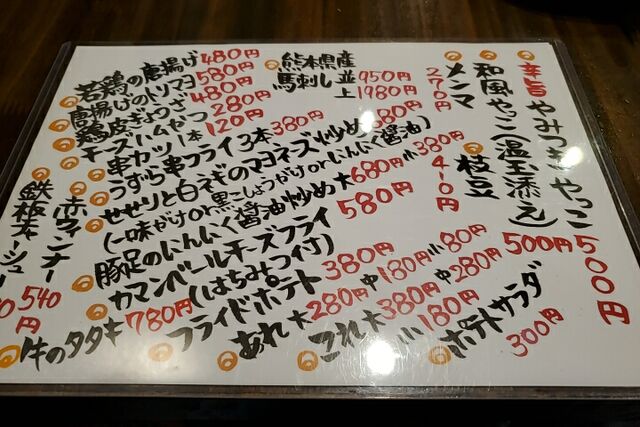 若鶏の唐揚げ 480円
唐揚げのトリマヨ 580円
鶏皮ぎょうざ 480円
チーズハムカツ 280円
串カツ 1本 120円
うずら串フライ 3本 380円
せせりと白ネギのマヨネーズ炒め 680円
(一味がけor黒こしょうがけorにんにく醤油)
豚足のにんにく醤油炒め 大680円 小380円
カマンベールチーズフライ 580円
(はちみつ付)
フライドポテト 380円
あれ 大280円 中180円 小80円
これ 大380円 中280円 小180円
ポテトサラダ 300円
熊本県産
馬刺し 並 950円
上 1980円
メンマ 270円
和風やっこ(温玉添え) 500円
枝豆 410円
辛旨 やみつきやっこ 500円
赤ウィンナー 540円
鉄板チーズ
牛のタタキ 780円